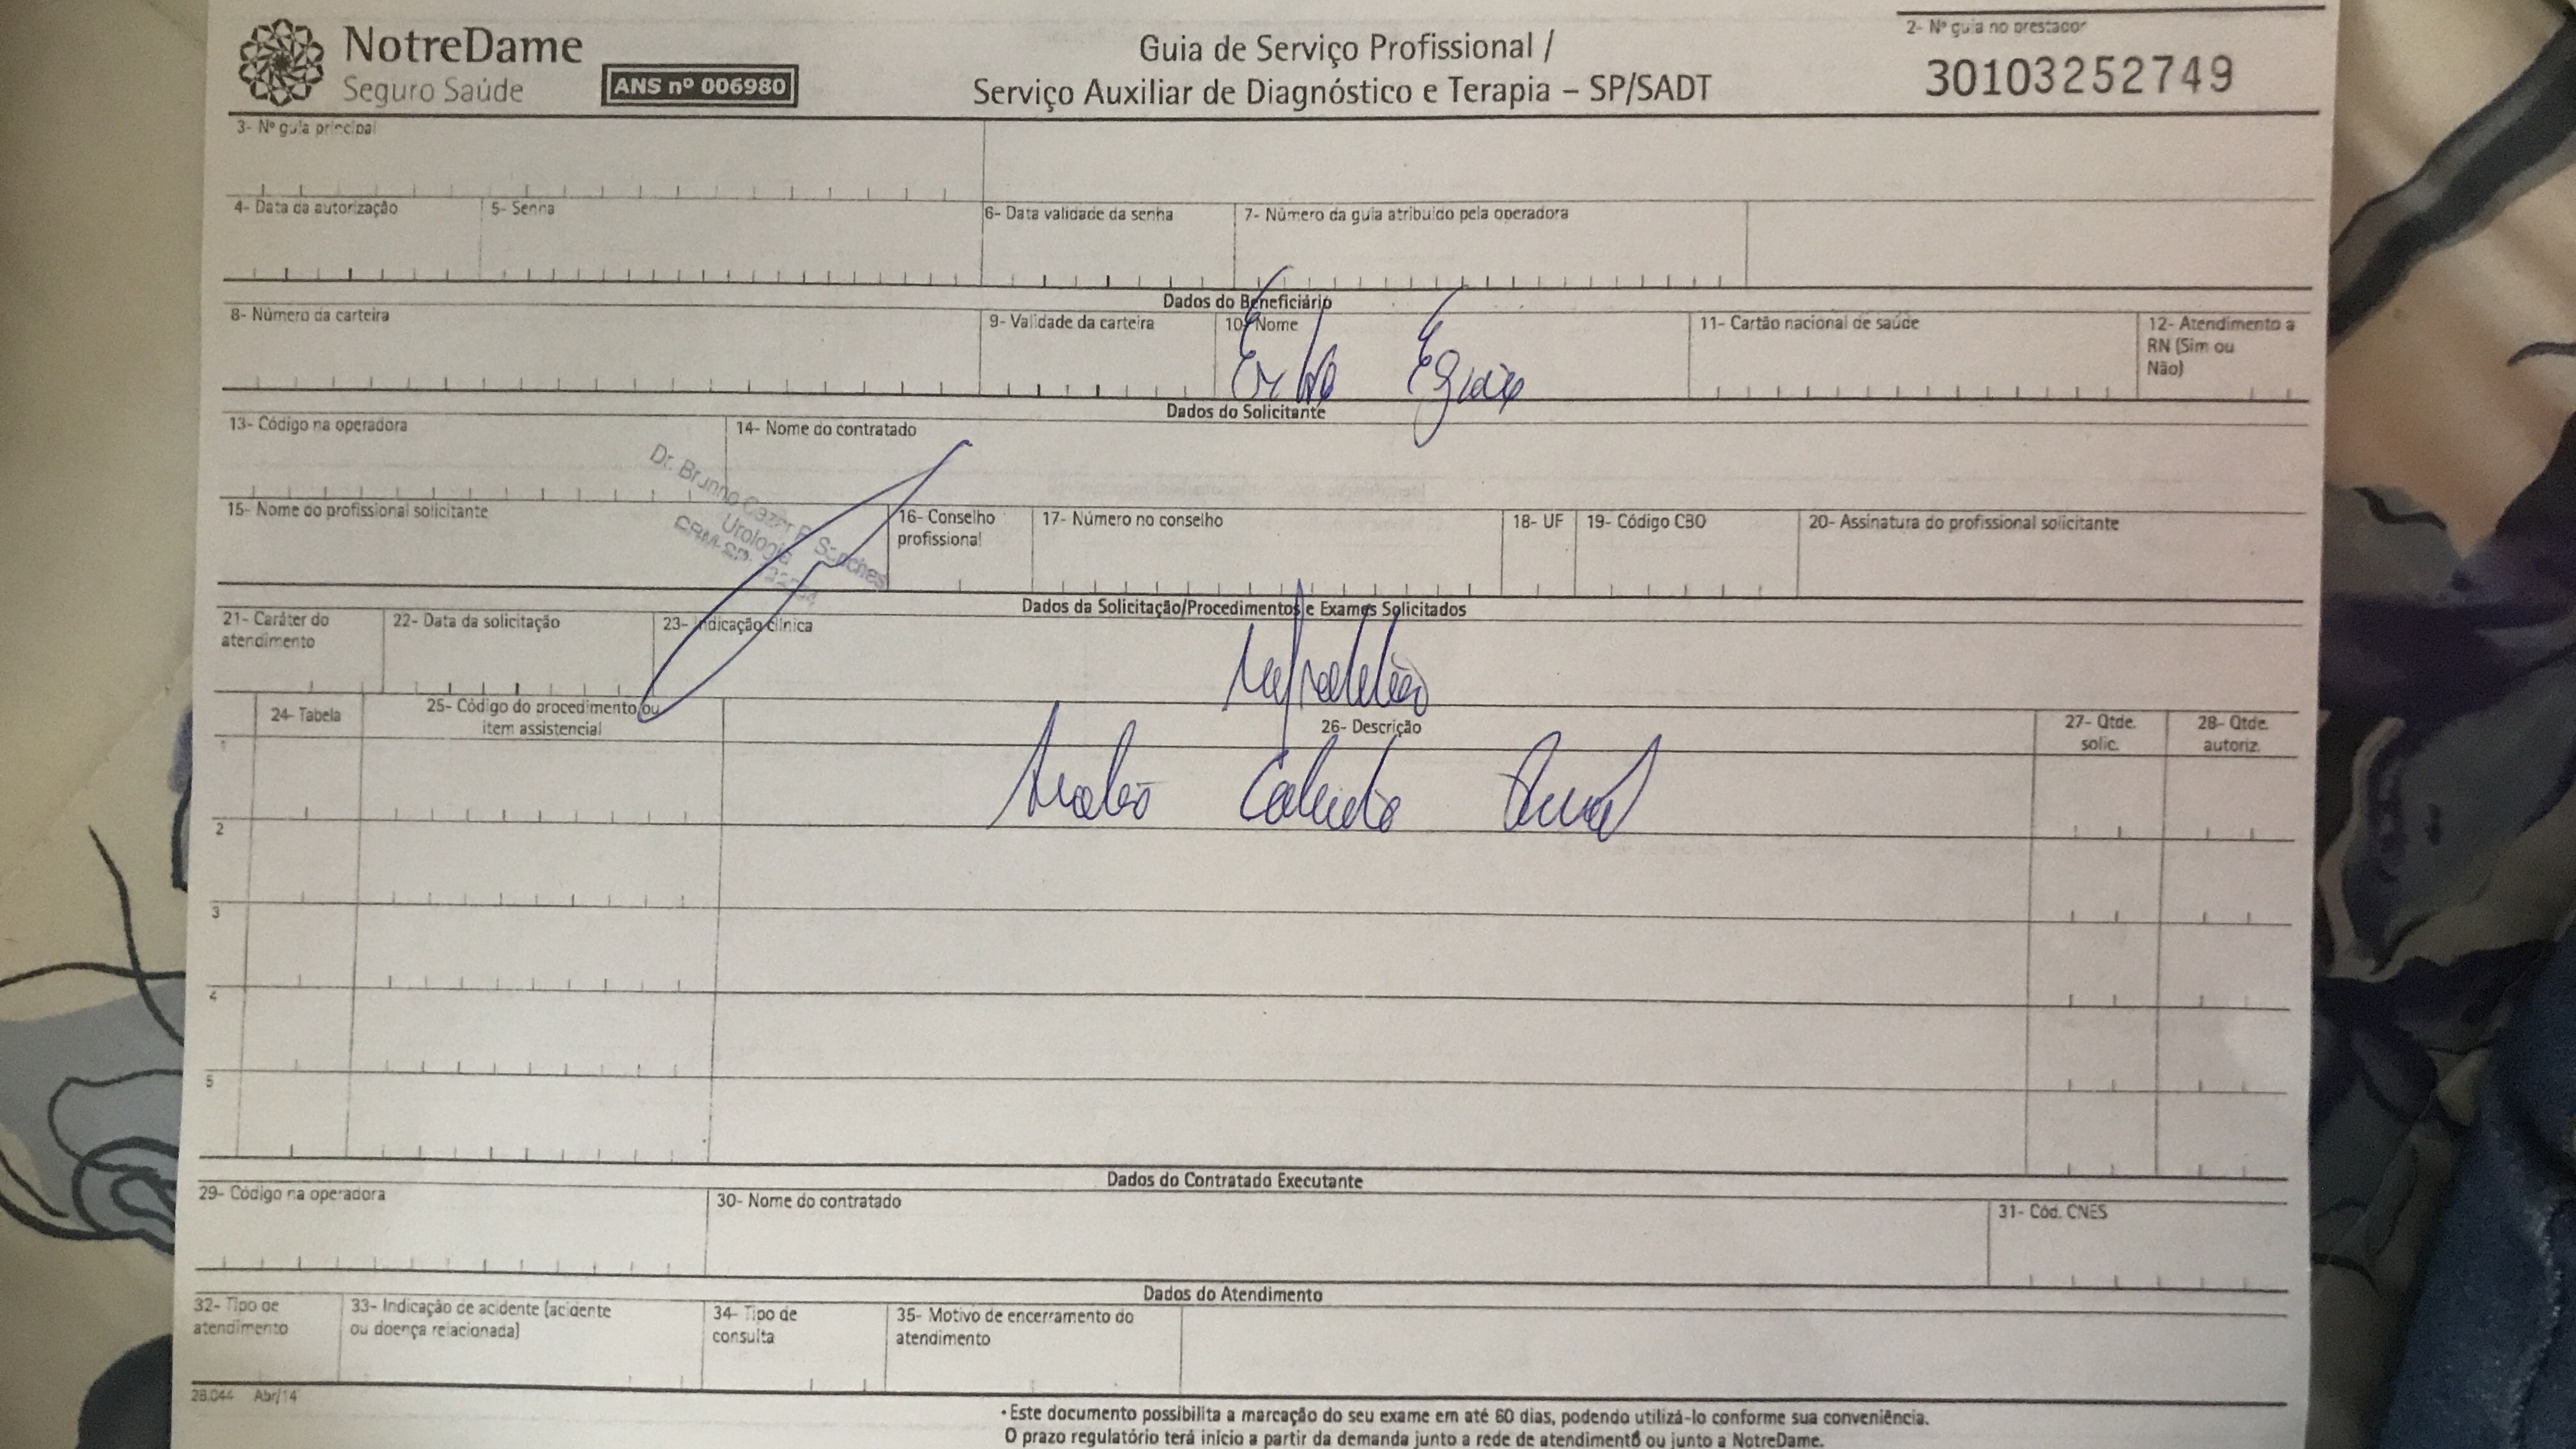 2- Nº guia no prestador
NotreDame
Seguro Saúde
ANS nº 006980
Guia de Serviço Profissional /
Serviço Auxiliar de Diagnóstico e Terapia – SP/SADT
30103252749
3- Nº guia principal
4- Data da autorização
5- Senha
6- Data validade da senha
7- Número da guia atribuído pela operadora
Dados do Beneficiário
8- Número da carteira
9- Validade da carteira
10- Nome
11- Cartão nacional de saúde
12- Atendimento a
RN (Sim ou
Não)
Dados do Solicitante
13- Código na operadora
14- Nome do contratado
Dr. Bruno
Urologia
15- Nome do profissional solicitante
16- Conselho
profissional
17- Número no conselho
18- UF
19- Código CBO
20- Assinatura do profissional solicitante
Dados da Solicitação/Procedimentos e Exames Solicitados
21- Caráter do
atendimento
22- Data da solicitação
23- Indicação clínica
24- Tabela
25- Código do procedimento ou
item assistencial
26- Descrição
27- Qtde.
solic.
28- Qtde.
autoriz.
1
2
3
4
5
Dados do Contratado Executante
29- Código na operadora
30- Nome do contratado
31- Cód. CNES
Dados do Atendimento
32- Tipo de
atendimento
33- Indicação de acidente (acidente
ou doença relacionada)
34- Tipo de
consulta
35- Motivo de encerramento do
atendimento
28.044 Abr/14
• Este documento possibilita a marcação do seu exame em até 60 dias, podendo utilizá-lo conforme sua conveniência.
O prazo regulatório terá início a partir da demanda junto a rede de atendimento ou junto a NotreDame.